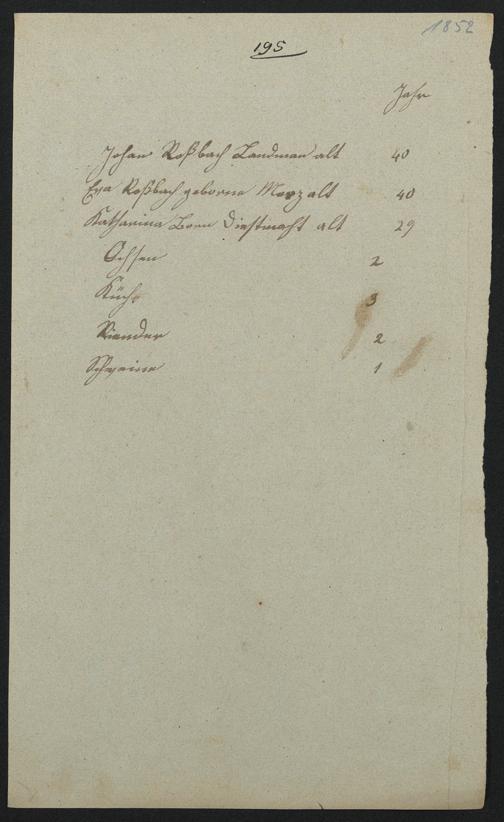 1852
195
Jahr
Johan Roßbach Landman alt 40
Eva Roßbach geborne Merz alt 40
Katharina Born Dinstmaht alt 29
Ochsen 2
Küch 3
Riender 2
Schweine 1